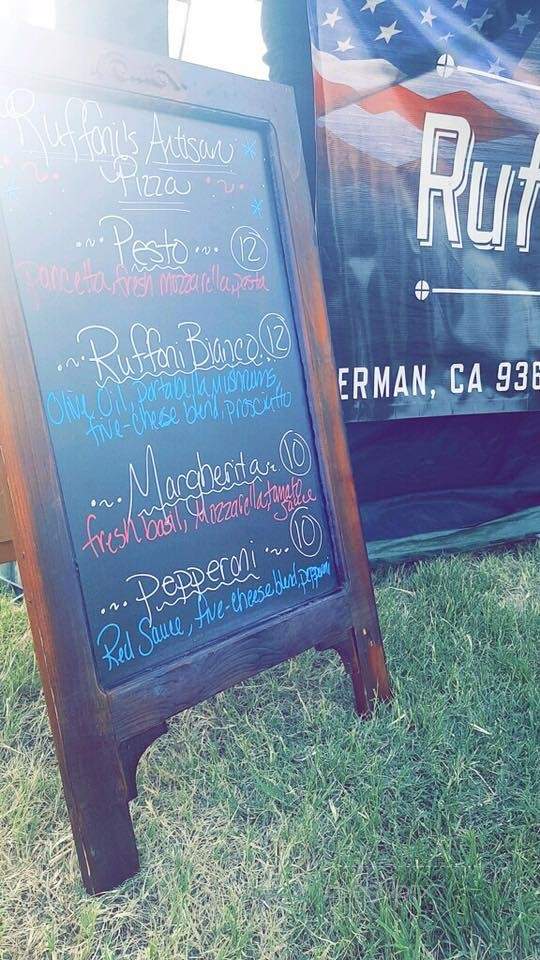 Ruffoni's Artisan
Pizza
Pesto 12
pancetta, fresh mozzarella, pesto
Ruffoni Bianco 12
Olive Oil, portabella mushrooms,
five-cheese blend, prosciutto
Margherita 10
fresh basil, Mozzarella, tomato
sauce
Pepperoni 10
Red Sauce, five-cheese blend, pepperoni
Ruf
ERMAN, CA 936